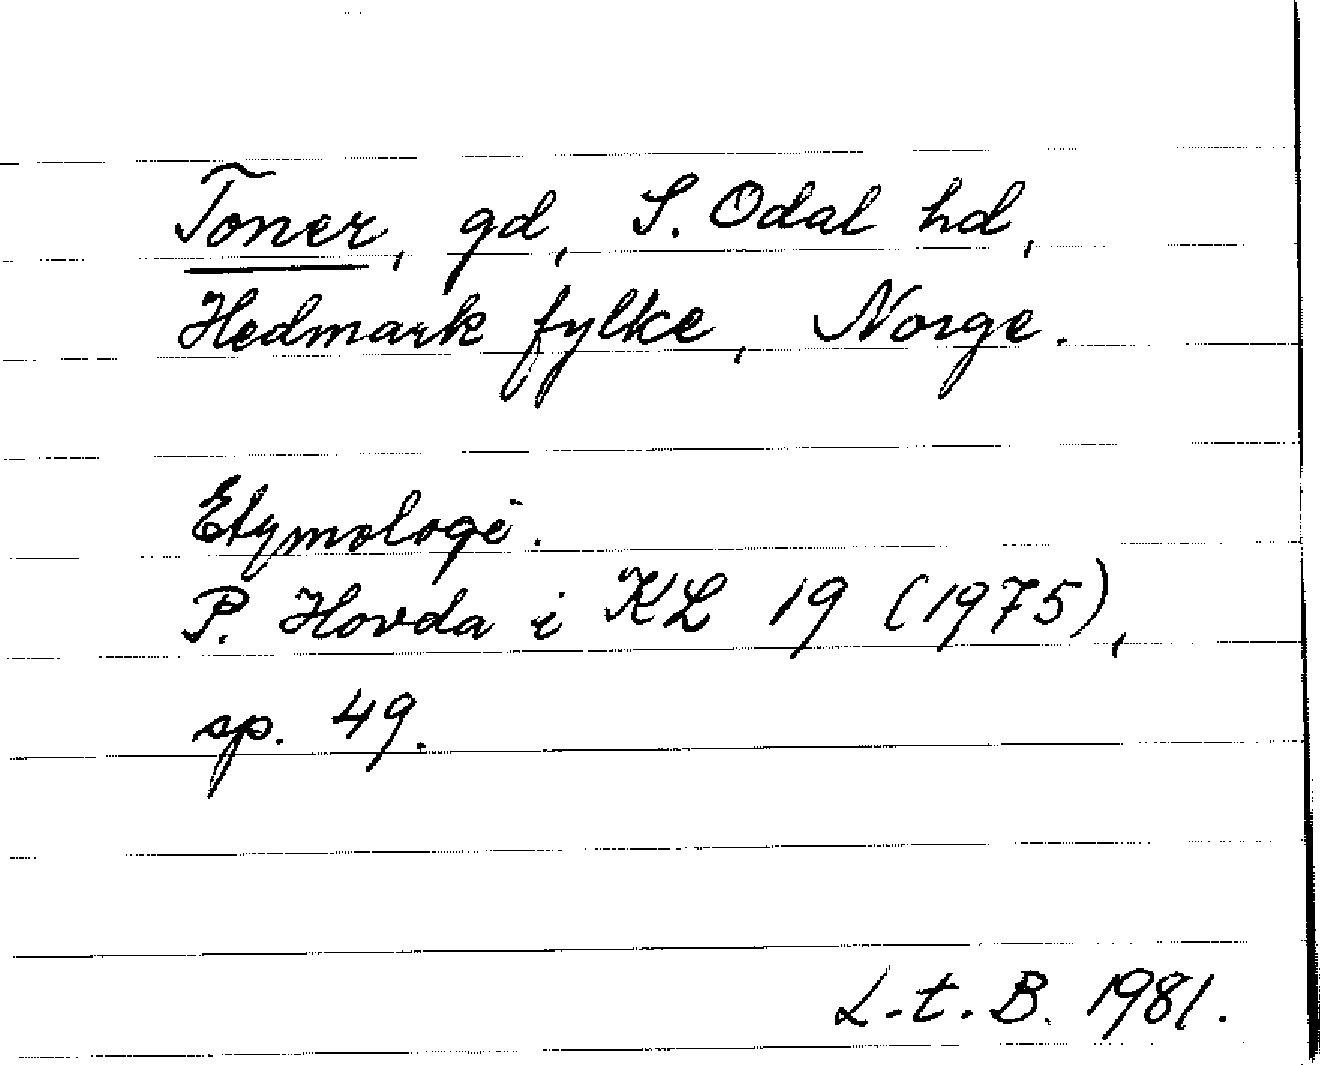 Toner, gd, S. Odal hd,
Hedmark fylke, Norge.
Etymologi.
P. Hovda i KL 19 (1975),
sp. 49.
L.t.B. 1981.